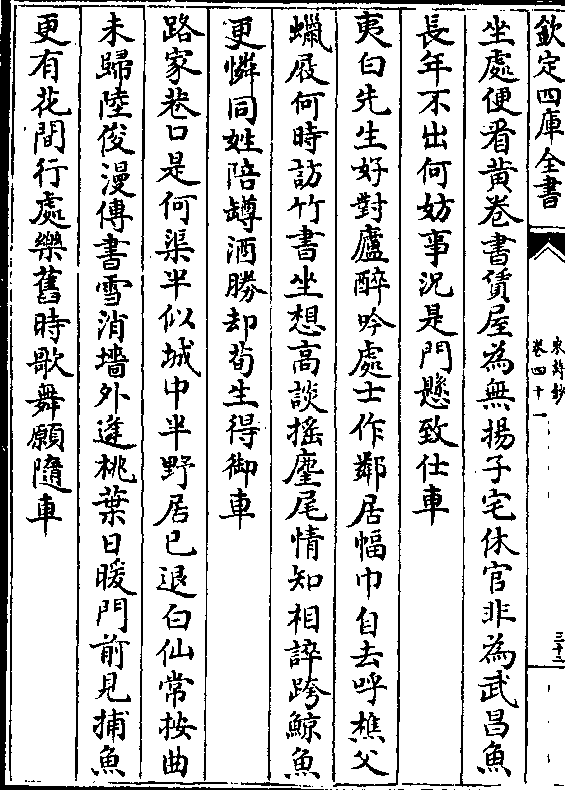 欽定四庫全書
宋詩鈔
卷四十一
三十二
坐處便看黄卷書賃屋為無揚子宅休官非為武昌魚
長年不出何妨事況是門懸致仕車
夷白先生好對廬醉吟處士作鄰居幅巾自去呼樵父
蠟屐何時訪竹書坐想高談摇麈尾情知相誶跨鯨魚
更憐同姓陪罇酒勝却荀生得御車
路家巷口是何渠半似城中半野居已退白仙常按曲
未歸陸俊漫傳書雪消墻外逢桃葉日暖門前見捕魚
更有花間行處樂舊時歌舞願隨車